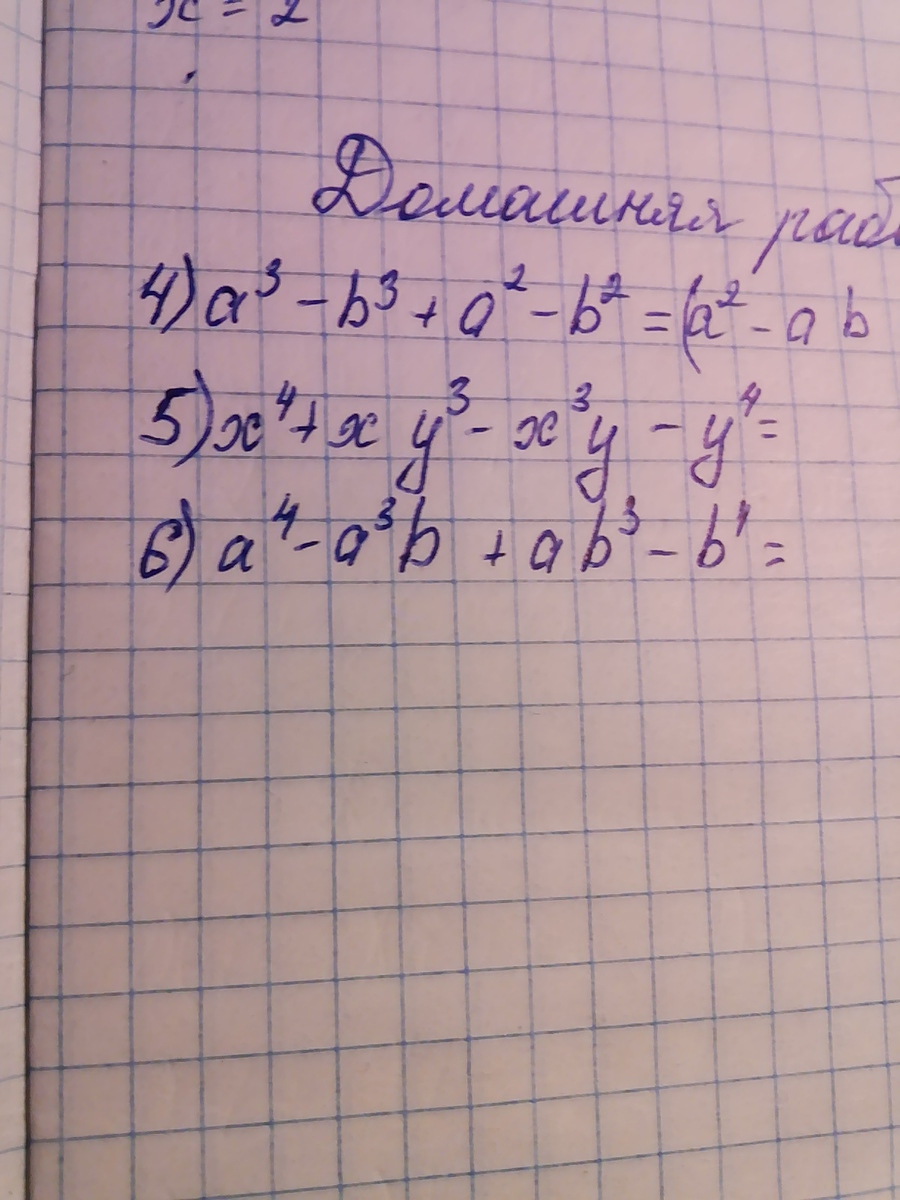 x = 2
Домашняя раб
4) a³ - b³ + a² - b² = (a² - a b
5) x⁴ + x y³ - x³y - y⁴ =
6) a⁴ - a³b + ab³ - b⁴ =